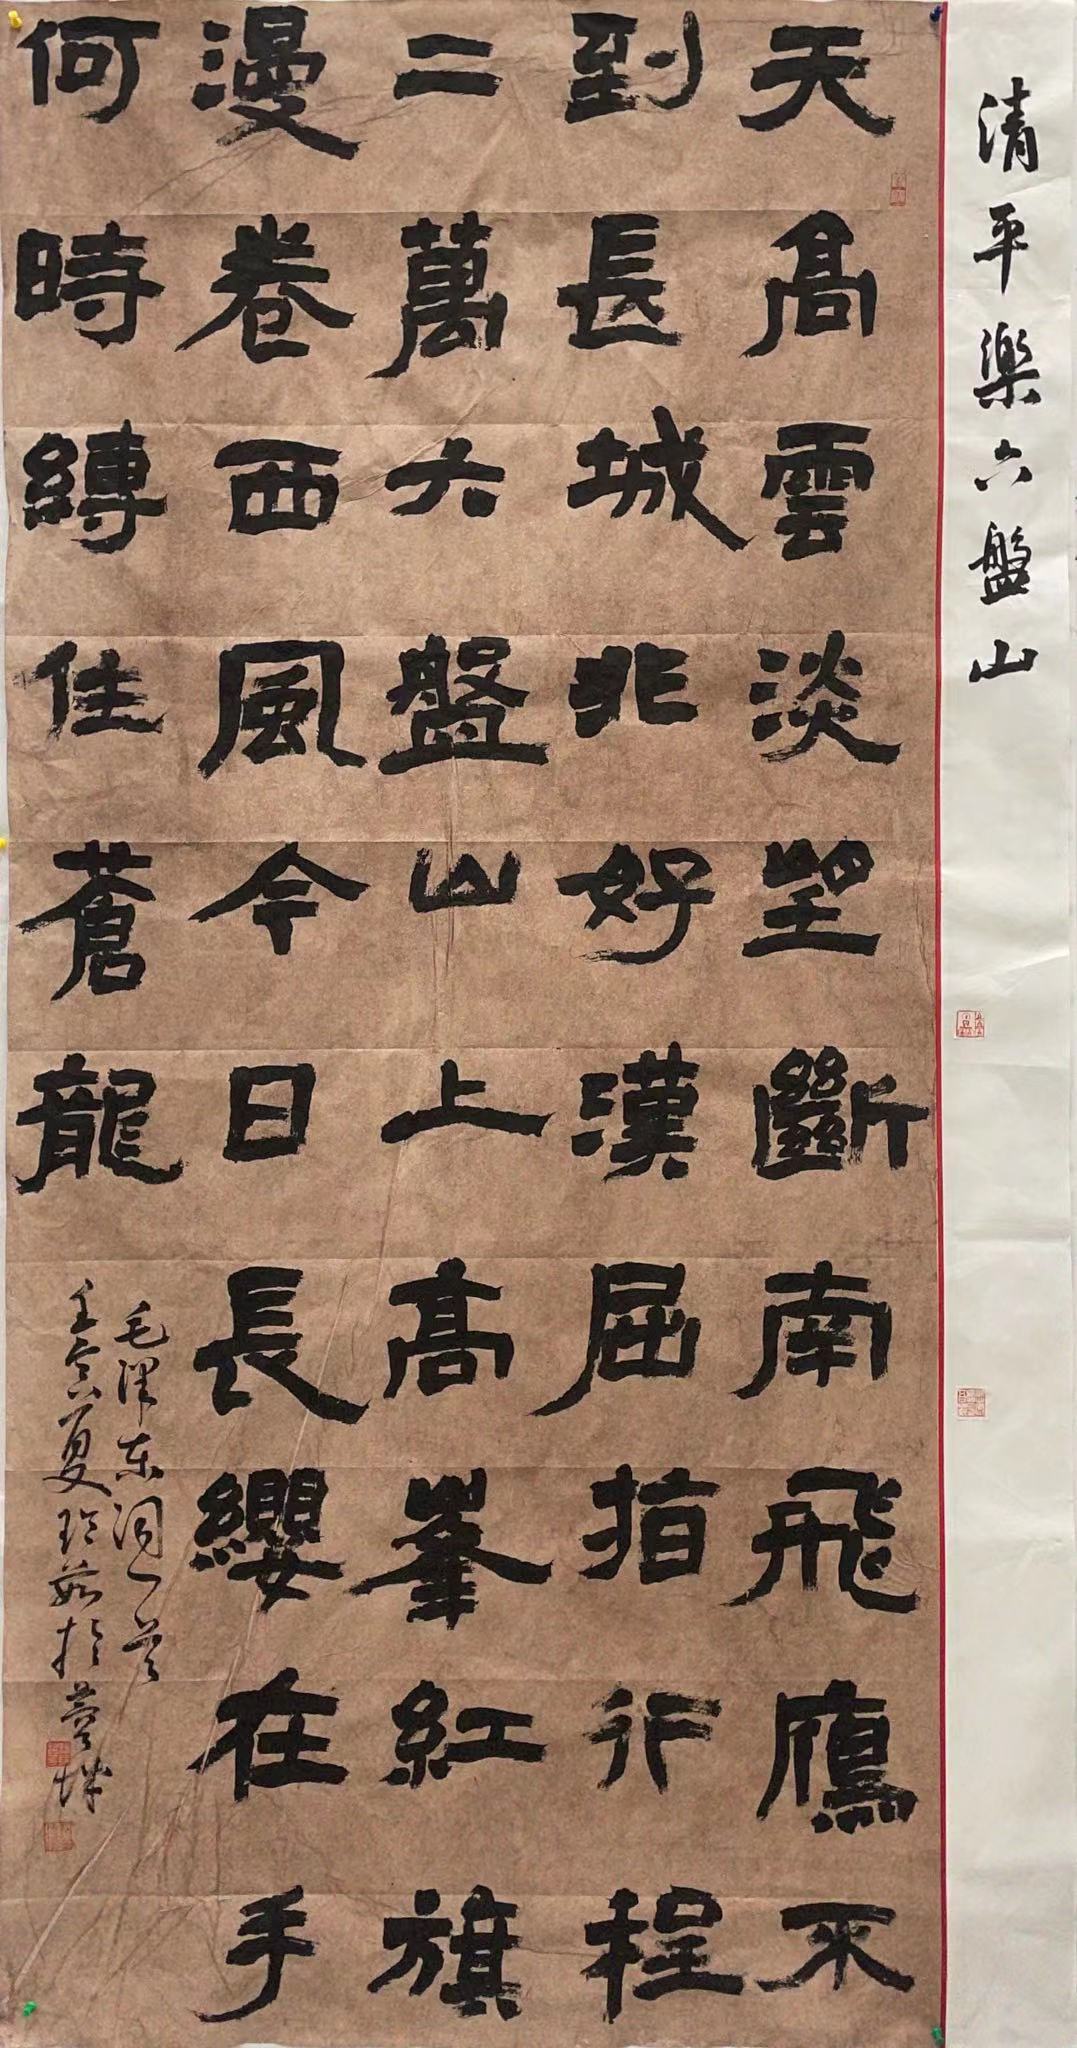 清平樂六盤山
天高雲淡望斷南飛鴈不
到長城非好漢屈指行程
二萬六盤山上高峯紅旗
漫卷西風今日長纓在手
何時縛住蒼龍
毛澤東詞一首
壬寅夏 於